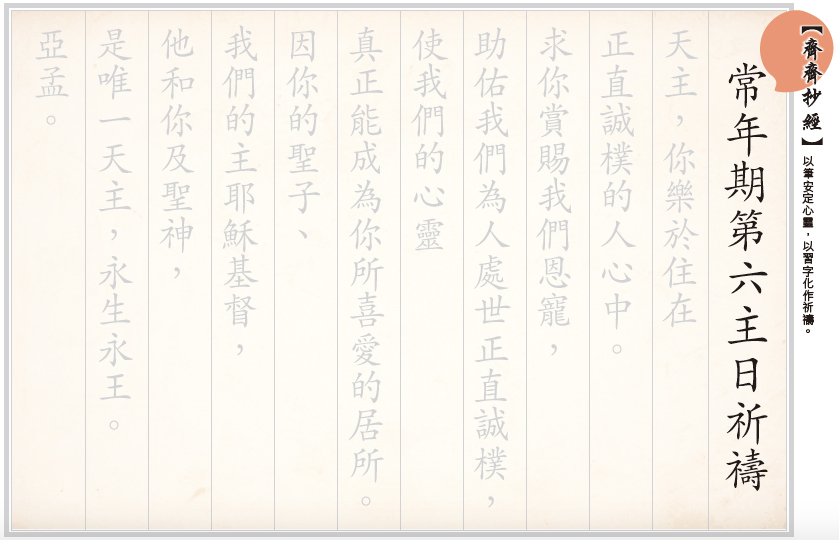 【齋齋抄經】
以筆安定心靈，以習字化作祈禱。
常年期第六主日祈禱
天主，你樂於住在
正直誠樸的人心中。
求你賞賜我們恩寵，
助佑我們為人處世正直誠樸，
使我們的心靈
真正能成為你所喜愛的居所。
因你的聖子、
我們的主耶穌基督，
他和你及聖神，
是唯一天主，永生永王。
亞孟。